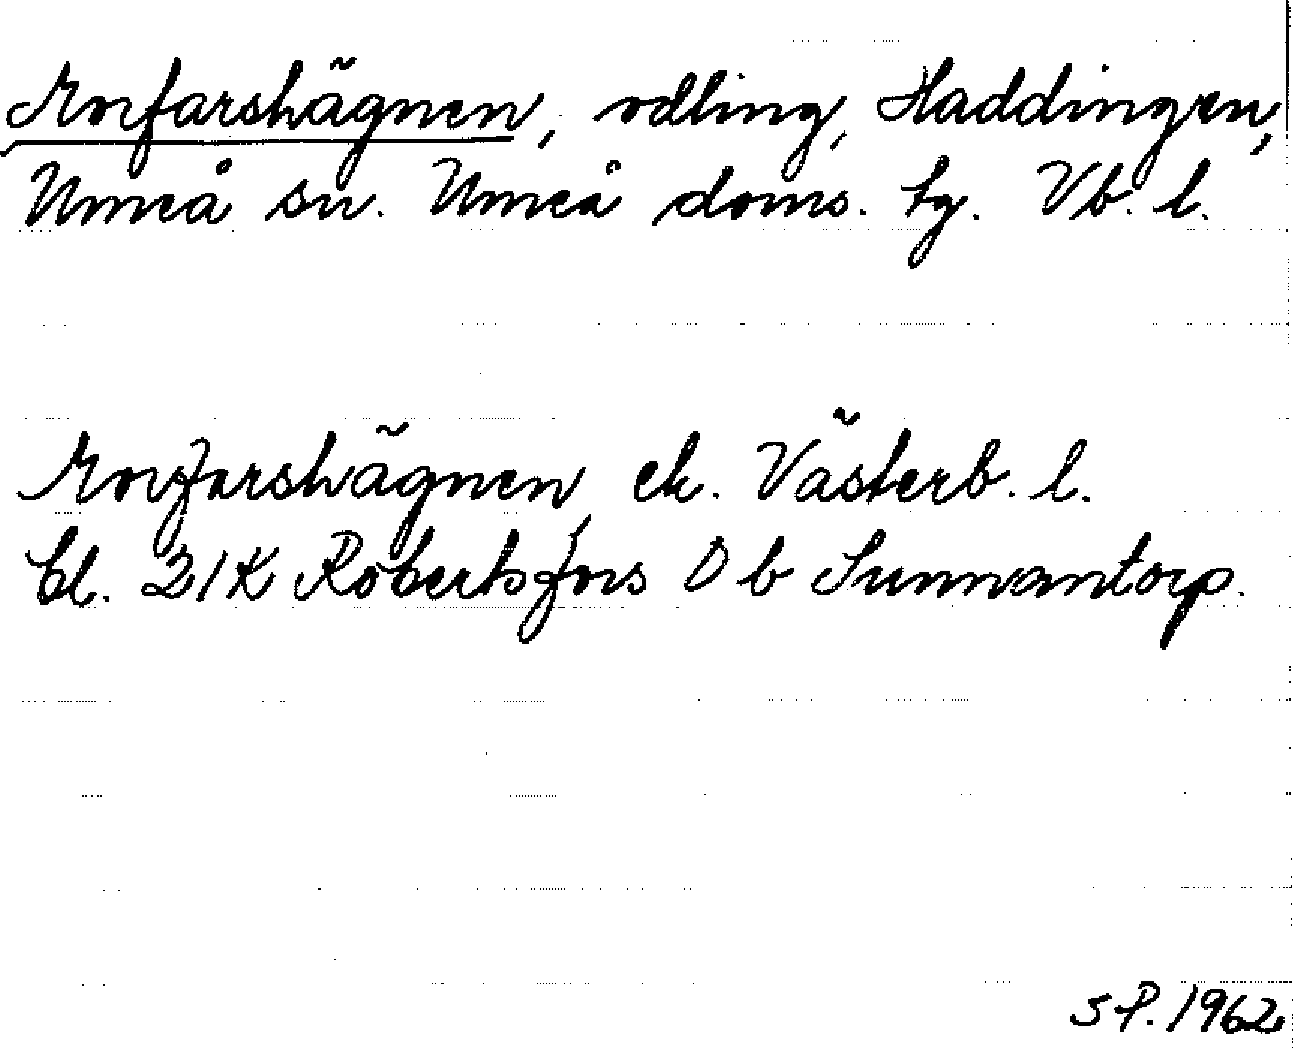 Morfarshägnen, odling, Haddingen,
Umeå sn. Umeå doms. tg. Vb. l.
Morfarshägnen, ek. Västerb. l.
bl. 21K Robertsfors O b Sunnantorp.
S P. 1962